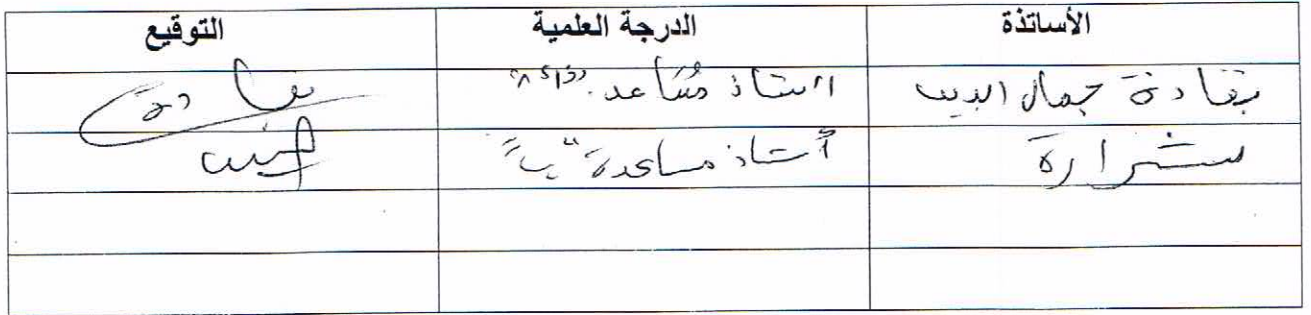 الأساتذة الدرجة العلمية التوقيع
بقادة جمال الدين استاذ مُساعد
شرارة أستاذ مساعدة "ب"